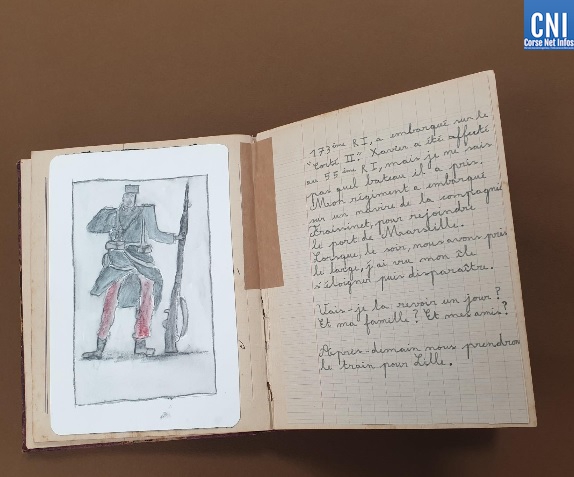 CNI
Corse Net Infos
173ème RI, a embarqué sur le
"Corté II". Xavier a été affecté
au 55ème RI, mais je ne sais
pas quel bateau il a pris.
Mon régiment a embarqué
sur un navire de la compagnie
Fraissinet, pour rejoindre
le port de Marseille.
Lorsque, le soir, nous avons pris
le large, j'ai vu mon île
s'éloigner puis disparaître.
Vais-je la revoir un jour ?
Et ma famille ? Et mes amis ?
Après-demain nous prendrons
le train pour Lille.